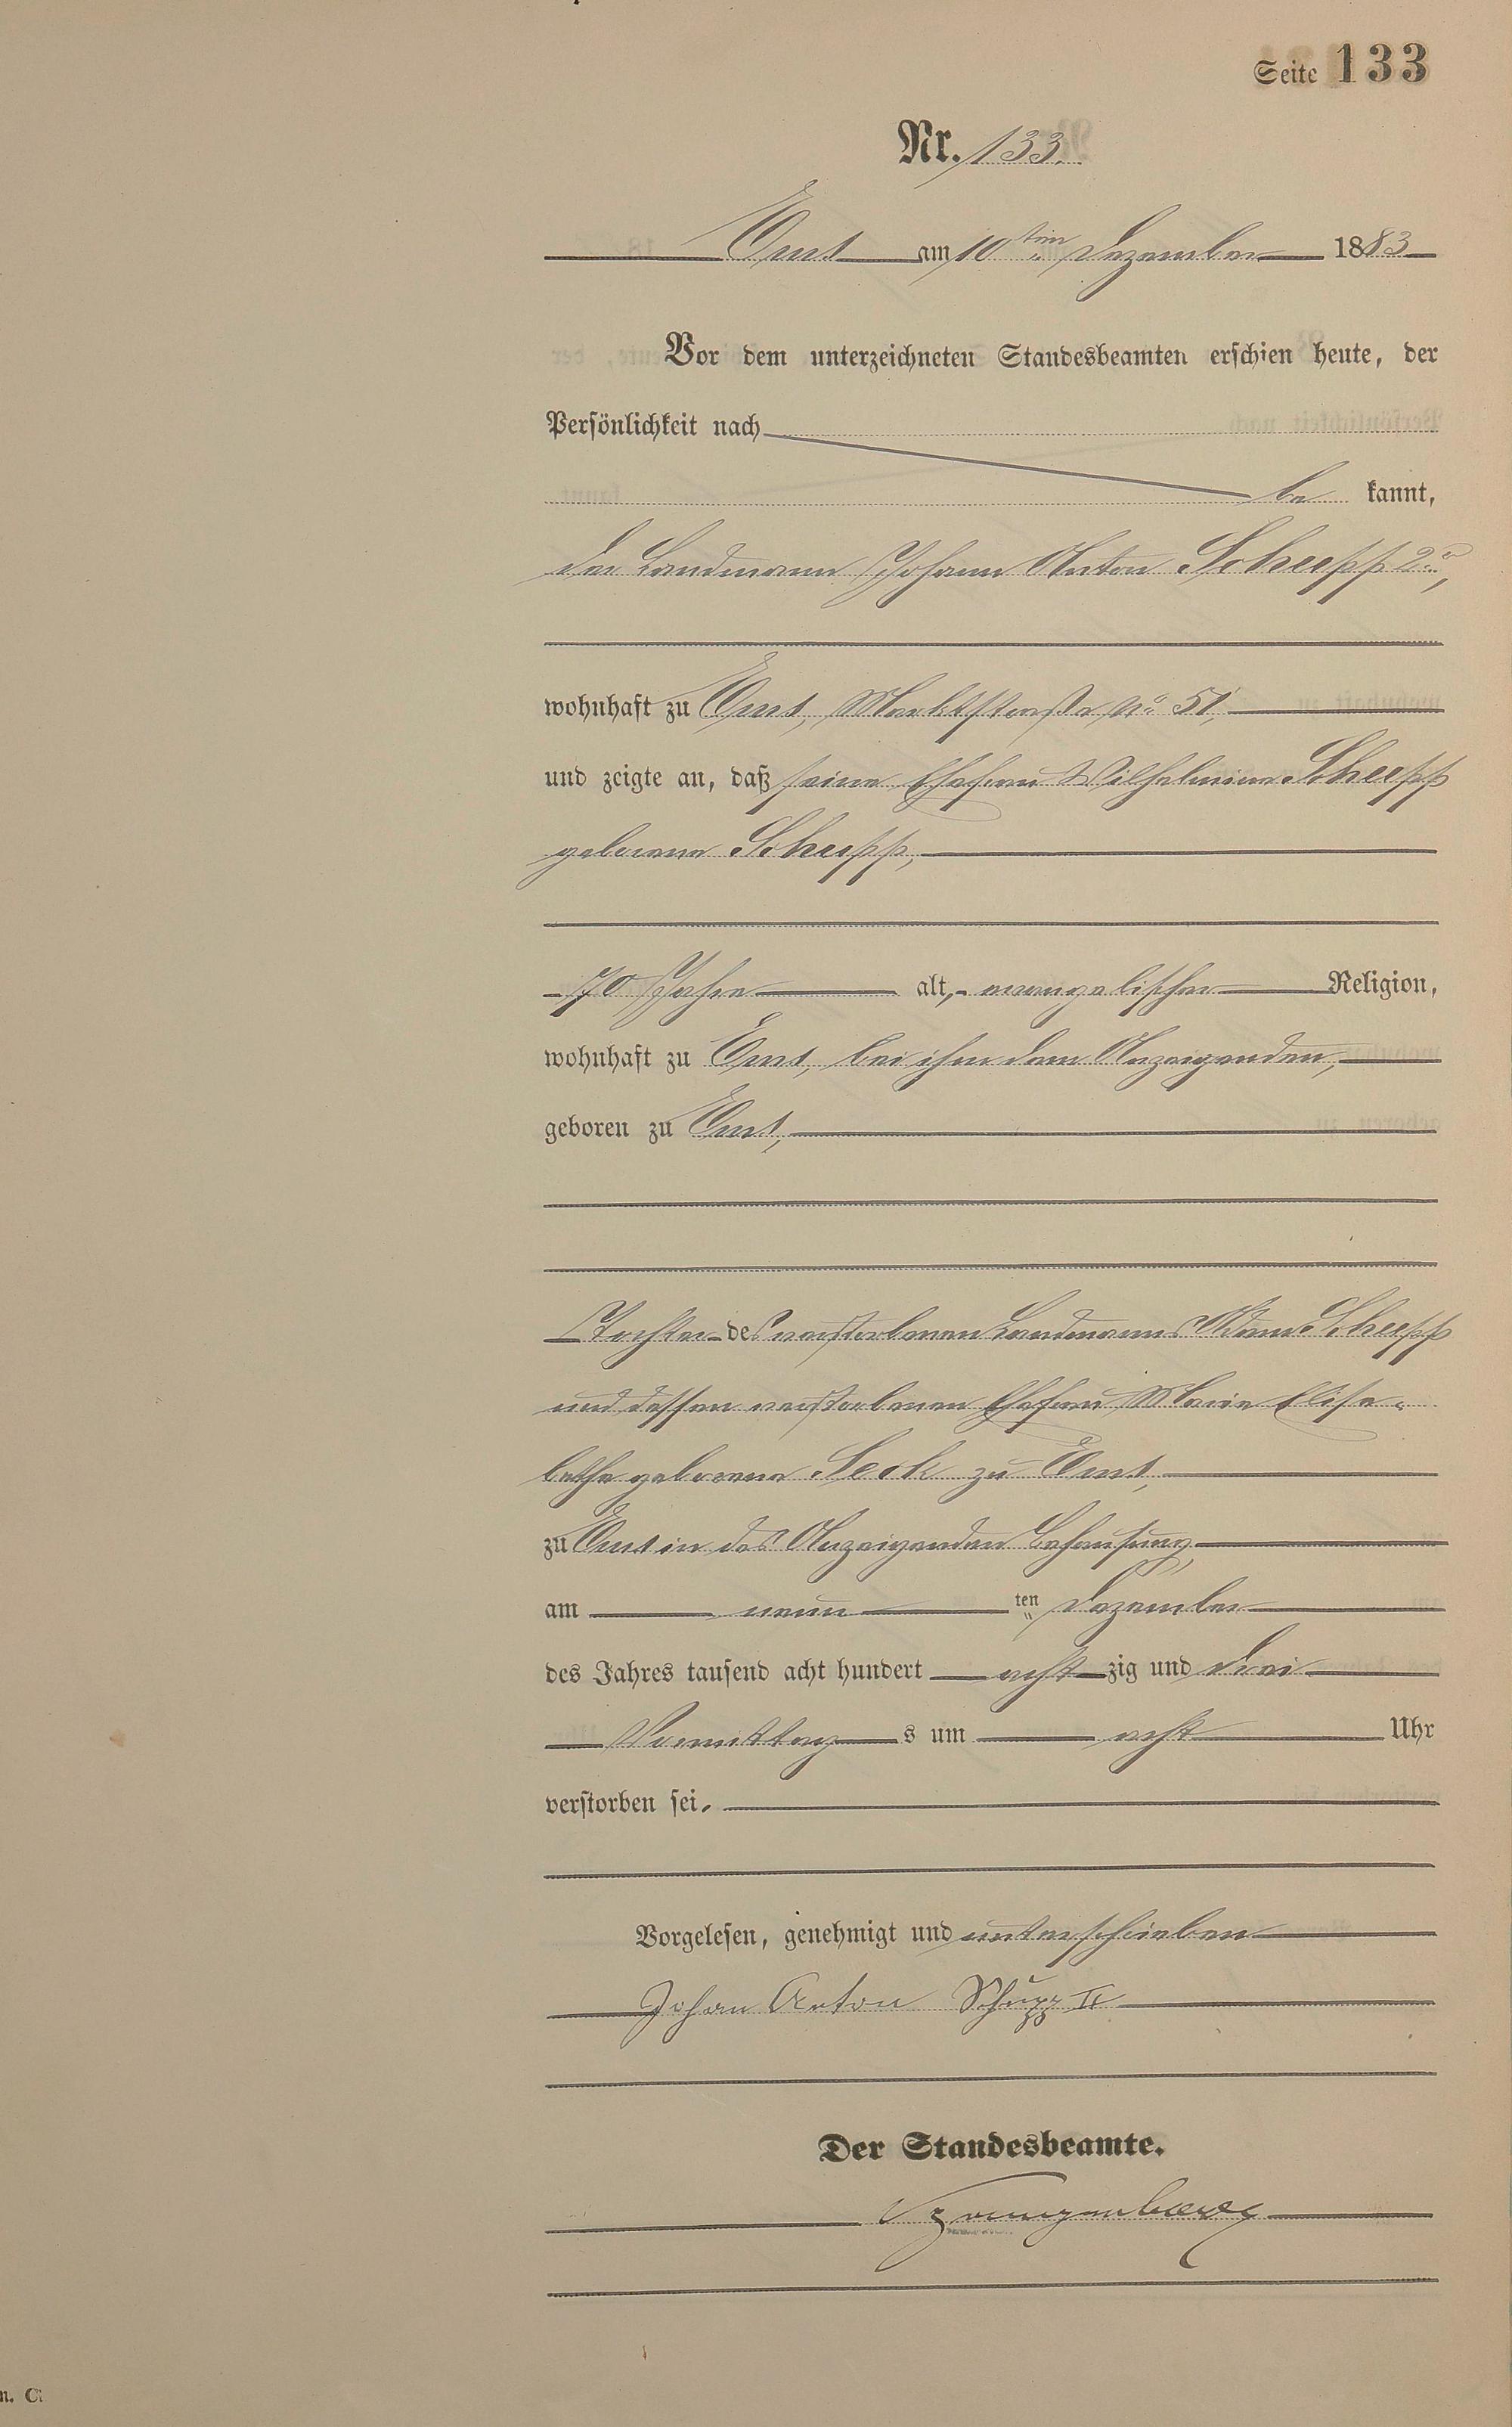 Seite 133
Nr. 133.
Ems am 10ten Dezember 1883
Vor dem unterzeichneten Standesbeamten erschien heute, der
Persönlichkeit nach
be kannt,
der Landmann Johann Anton Schupp 2r,
wohnhaft zu Ems, Marktstraße No 51,
und zeigte an, daß seine Ehefrau Wilhelmine Schupp
geborene Schupp,
70 Jahre alt, evangelischer Religion,
wohnhaft zu Ems, bei ihm dem Anzeigenden,
geboren zu Ems,
Tochter des verstorbenen Landmanns Adam Schupp
und dessen verstorbenen Ehefrau Marie Elisa-
bethe geborene Seck zu Ems,
zu Ems in des Anzeigenden Behausung,
am neun ten Dezember
des Jahres tausend acht hundert acht zig und drei
Vormittag s um acht Uhr
verstorben sei.
Vorgelesen, genehmigt und unterschrieben
Johan Anton Schupp II
Der Standesbeamte.
n. C.